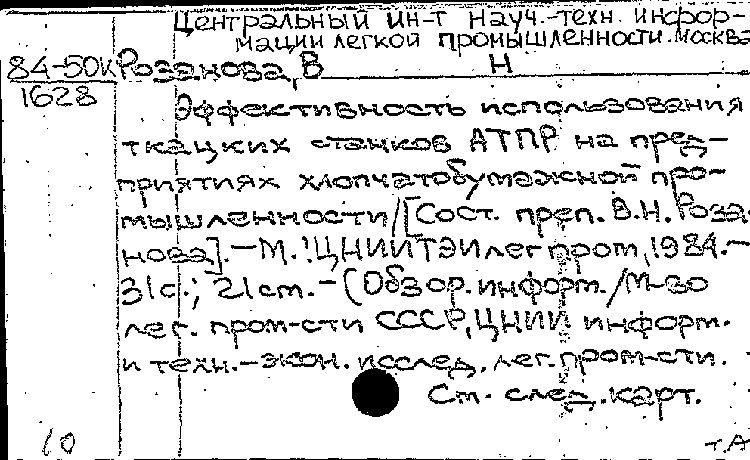 Центральный ин-т науч.-техн. инфор-
мации легкой промышленности. Москва
84-50к Розанова, В Н
1628
Эффективность использования
ткацких станков АТПР на пред-
приятиях хлопчатобумажной про-
мышленности/[Сост. преп. В.Н. Роза-
нова].-М.: ЦНИИТЭИлегпром, 1984.-
31с.; 21см.-(Обзор. информ./М-во
лег. пром-сти СССР, ЦНИИ информ.
и техн.-экон. исслед. лег. пром-сти.
См. след. карт.
10 т.А